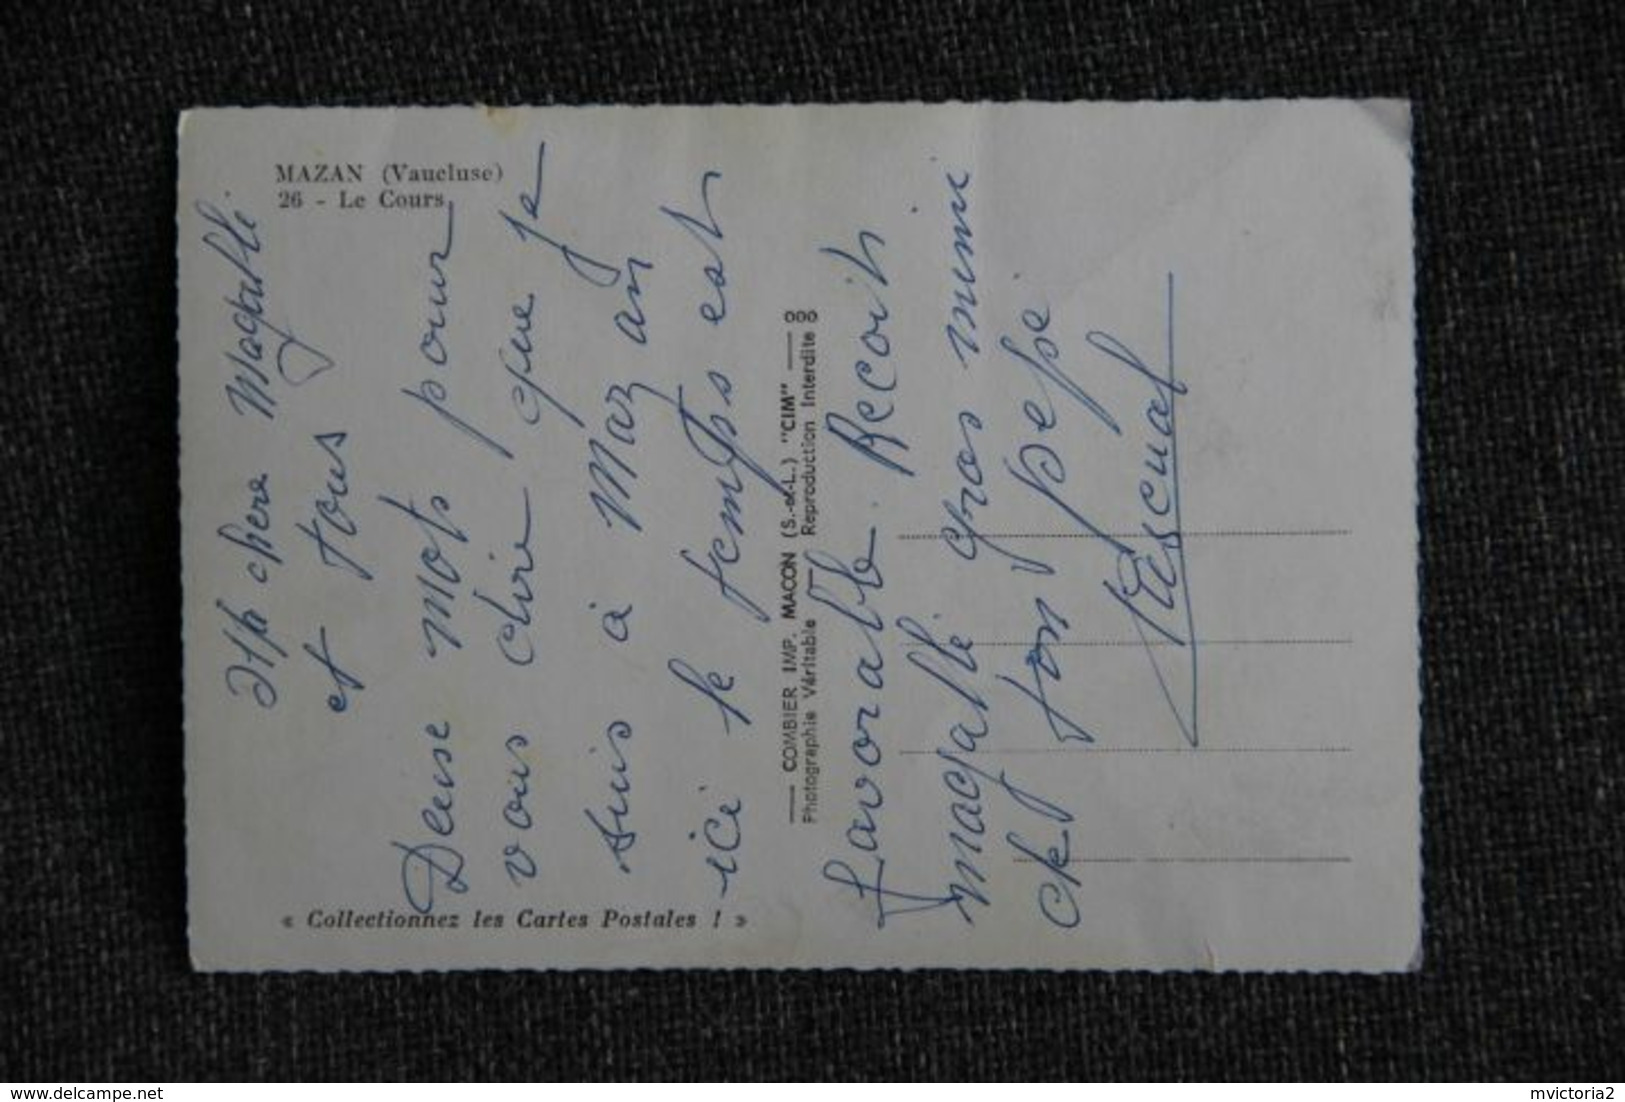 MAZAN (Vaucluse)
26 - Le Cours
Ma chere Magalli
et tous
Deuse mots pour
vous dire que je
suis à Mazan
ici le temps est
favoralle. Recoit
magalli gros mimi
de ton pepé
Pascual
COMBIER IMP. MACON (S.-et-L.) "CIM" ooo
Photographie Véritable Reproduction Interdite
« Collectionnez les Cartes Postales ! »
delcampe.net
mvictoria2